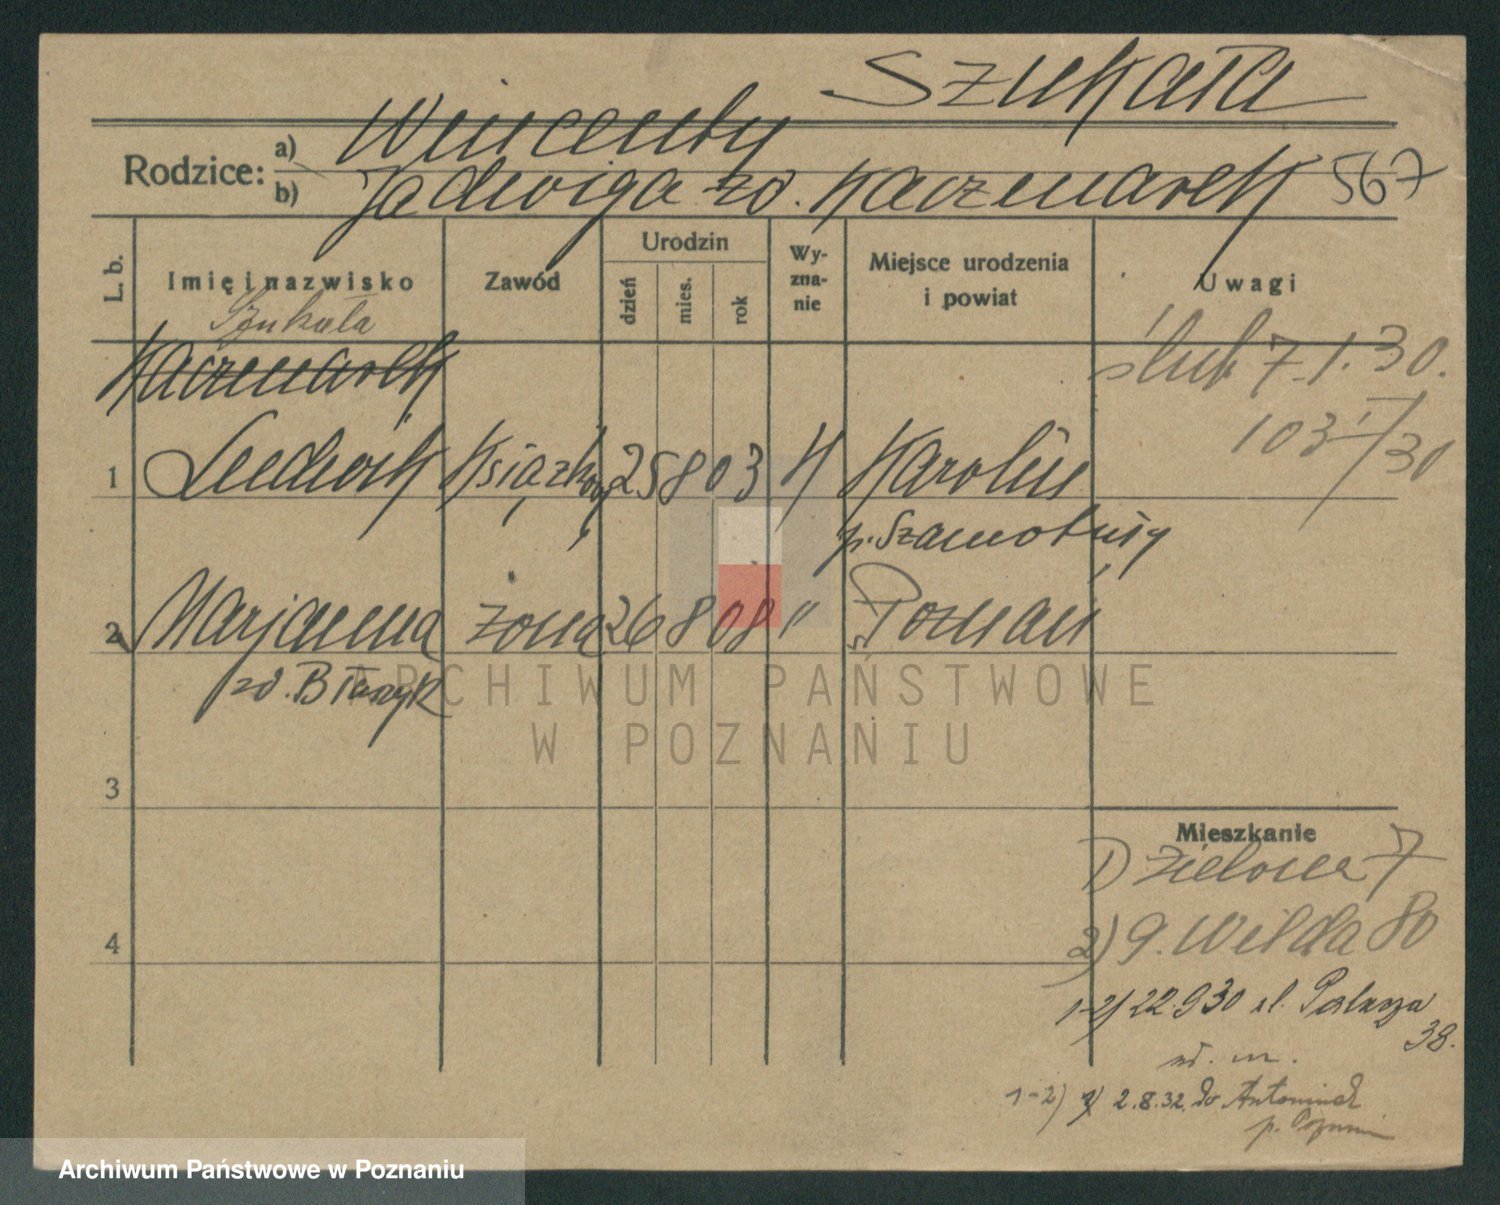 Szukała
Rodzice: a) Wincenty
b) Jadwiga zd. Kaczmarek 567
L. b. Imię i nazwisko Zawód Urodzin dzień mies. rok Wy-zna-nie Miejsce urodzenia i powiat Uwagi
Szukała
Kaczmarek ślub 7.1.30.
103 I/30
1 Ludwik Książkowy 25 8 03 K Karolin
p. Szamotuły
2 Marjanna żona 26 8 08 " Poznań
zd. Błaszyk
3
4
Mieszkanie
1) Zielona 7
2) G. Wilda 80
1-2) 22.9.30 ul. Palacza
38.
wł. m.
1-2) 2.8.32. do Antoninek
p. Poznań
ARCHIWUM PAŃSTWOWE
W POZNANIU
Archiwum Państwowe w Poznaniu